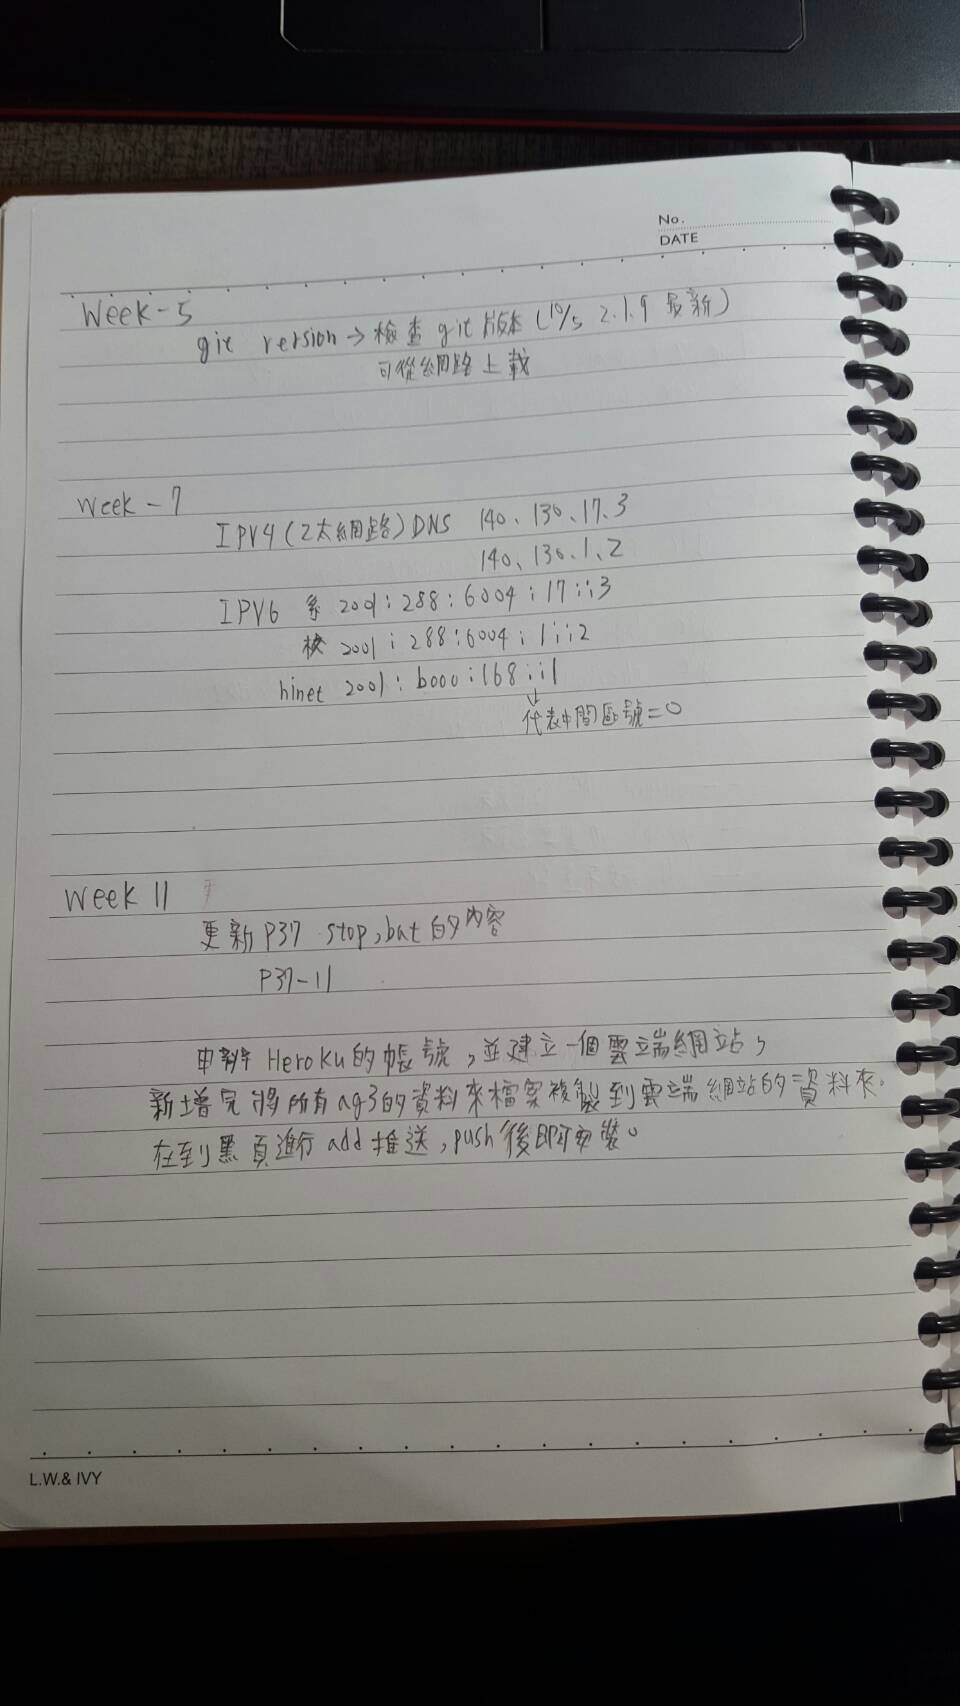 No.
DATE
Week-5
git version → 檢查 git 版本 (10/5 2.1.9 最新)
可從網路上載
Week-7
IPV4 (乙太網路) DNS 140、130、17、3
140、130、1、2
IPV6 系 2001:288:6004:17::3
校 2001:288:6004:1::2
hinet 2001:b000:168::1
↓
代表中間區號=0
Week 11
更新 P37 stop.bat 的內容
P37-11
申辦 Heroku的帳號,並建立一個雲端網站,
新增完將所有ag3的資料夾檔案複製到雲端網站的資料夾。
在到黑頁進行 add 推送,push後即可安裝。
L.W.& IVY